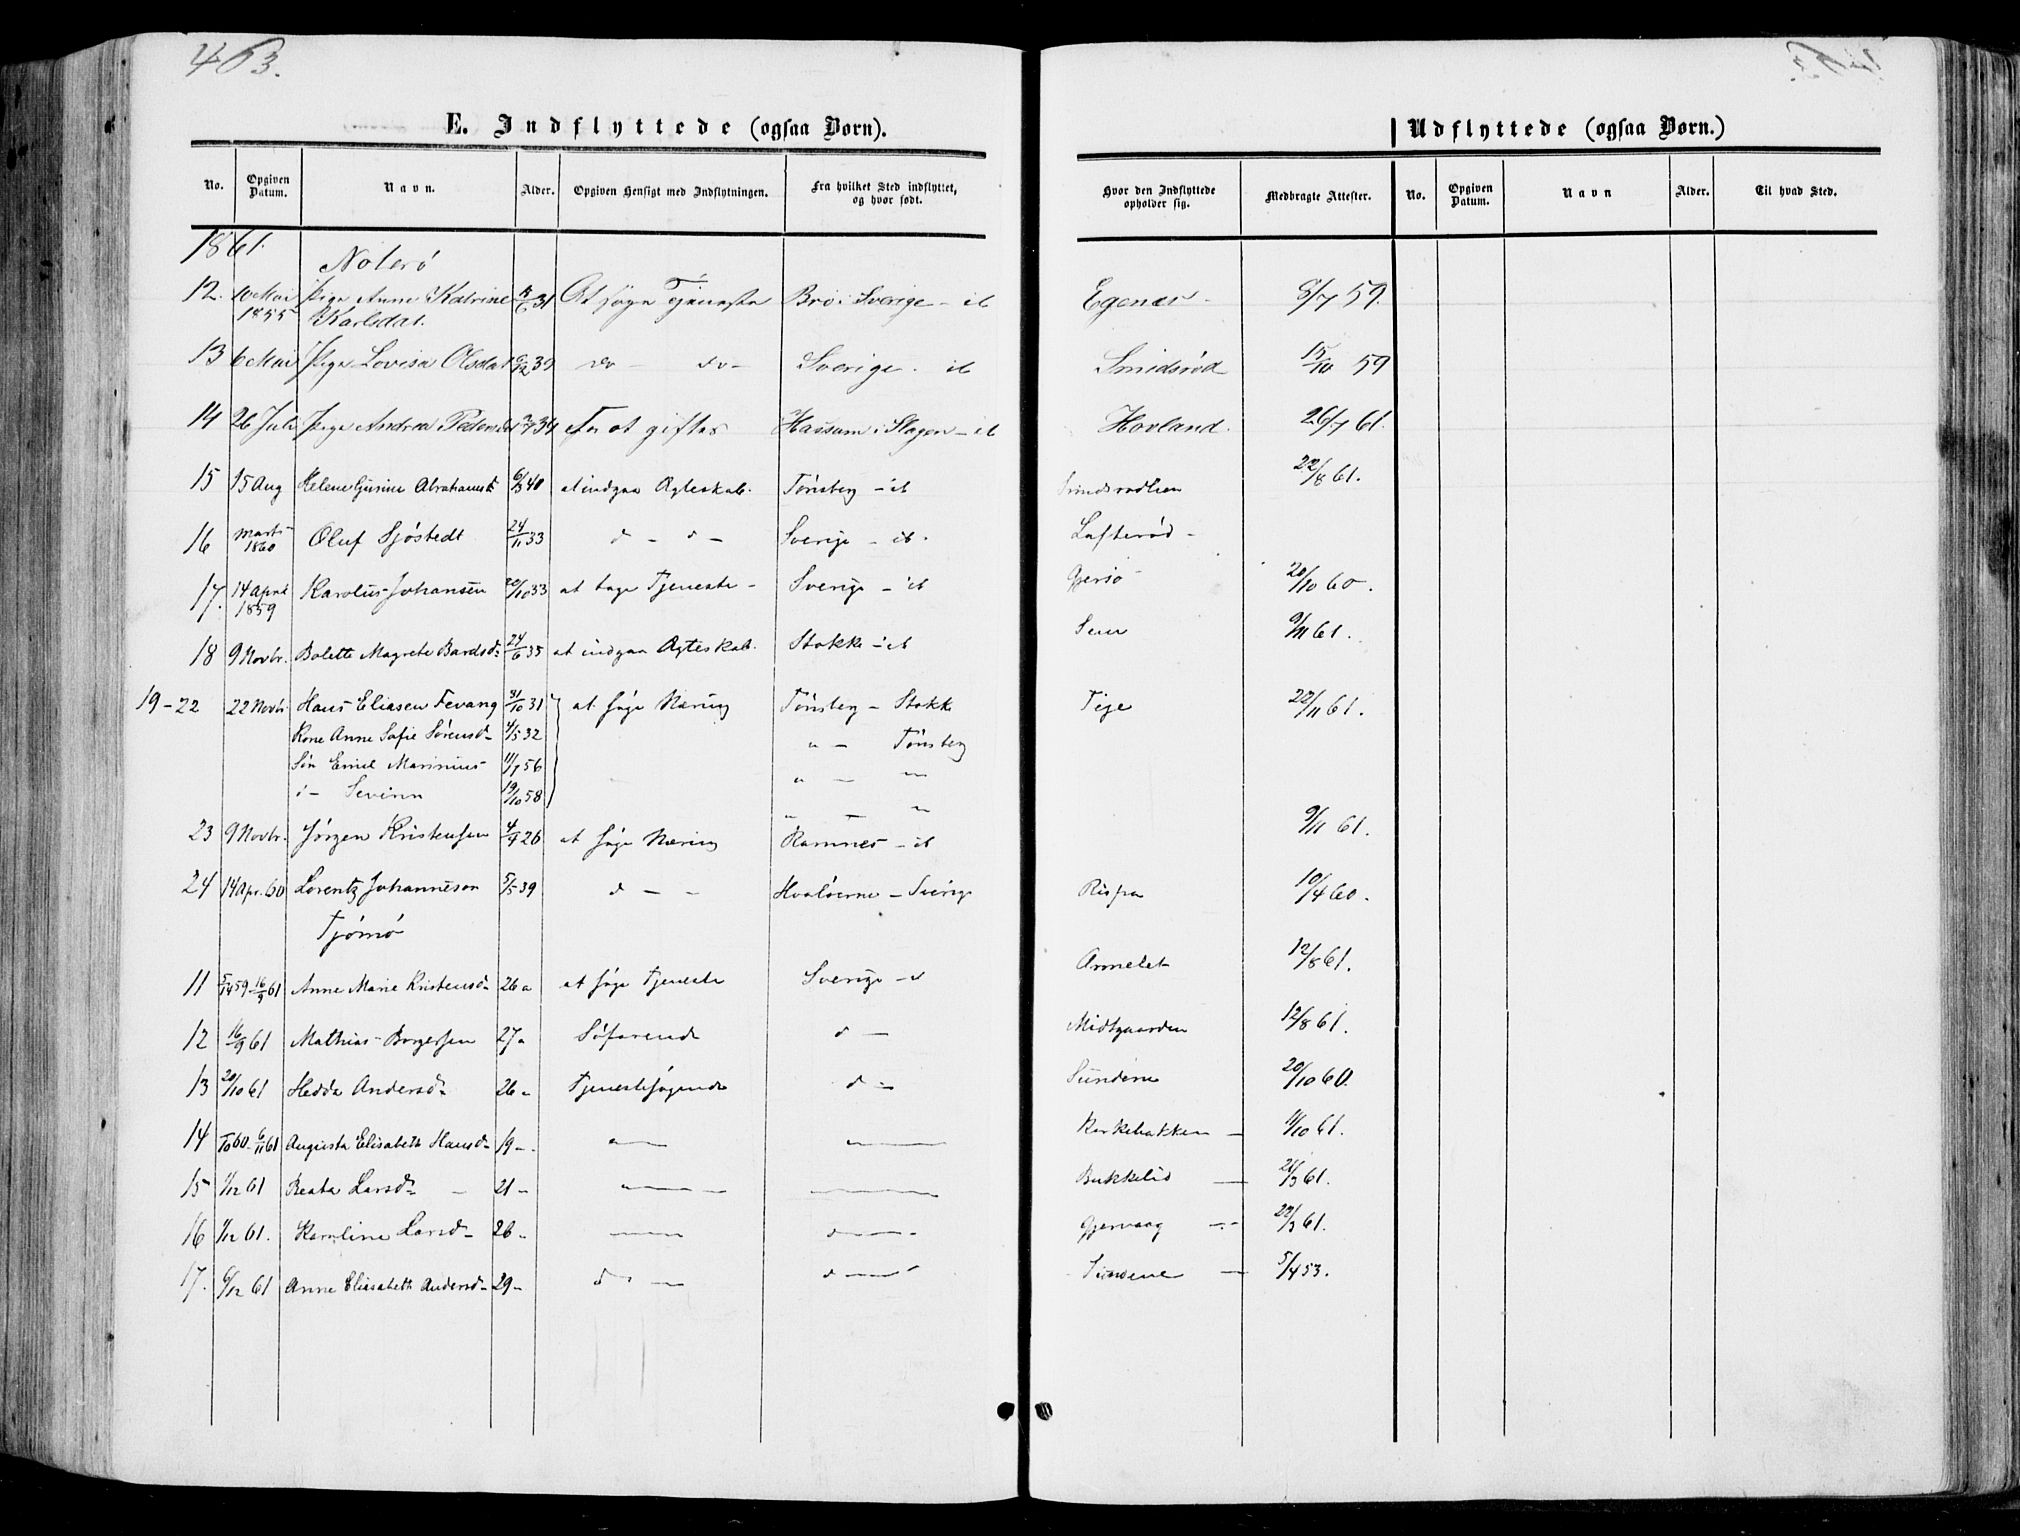 463.
E. Indflyttede (ogsaa Børn).
Udflyttede (ogsaa Børn.)
No. Opgiven Datum. Navn. Alder. Opgiven Hensigt med Indflytningen. Fra hvilket Sted indflyttet, og hvor født. Hvor den Indflyttede opholder sig. Medbragte Attester. No. Opgiven Datum. Navn Alder. Til hvad Sted.
1861.
Noterö
12. 10 Mai Pige Anne Katrine 31 At søge Tjeneste Bro i Sverige - ib Egenes - 8/7 59.
1855 Karlsdat.
13 6 Mai Pige Lovisa Olsdat 6/12 39 do - do - Sverige. ib Smidsrød 15/10 59
14 26 Juli Pige Andrea Pedersdat 34 For at giftes Hassum i Slagen - ib Hovland. 26/7 61.
15 15 Aug Helene Gusine Abrahamsd 6/8 40 at indgaa Ægteskab. Tønsberg - ib Smidsrødlien 22/8 61.
16 Marts 1860 Oluf Sjöstedt 24/11 33 d - d - Sverige - ib. Lofterød -
17. 14 April 1859 Karolus Johansen 20/10 33 at tage Tjeneste - Sverige - ib Gjersø 20/10 60.
18 9 Novbr. Bolette Magrete Bardsd: 24/6 35 at indgaa Ægteskab. Stokke - ib Sem 9/11 61.
19-22 22 Novbr. Hans Eliasen Fevang 31/10 31 at søge Næring Tønsberg - Stokke Teje 22/11 61.
Kone Anne Sofie Sørensd- 4/5 32 " - Tønsberg
Søn Emil Marinius 11/7 56 " - "
d - Severin 19/10 58 " - "
23 9 Novbr. Jörgen Kristensen 4/9 26 at søge Næring Ramnes - ib 9/11 61.
24 14 Apr. 60 Lorentz Johanneson 5/5 39 d - - Hvaløerne - Sverige Rispa 10/4 60.
Tjömö
11 5/14 59 - 16/9 61 Anne Marie Kristensd- 26 a at søge Tjeneste Sverige - d Ormelet 12/8 61.
12 16/9 61 Mathias Borgersen 27 - Söfarende d - Midtgaarden 12/8 61.
13 20/10 61 Hedda Andersd- 26 - Tjenestesøgende d - Sundene 20/10 60.
14 60 - 6/11 61 Augusta Elisabeth Hansd- 19 - " — " — Kirkebakken - 11/10 61.
15 1/12 61 Beata Larsd- - 21 - " — — Bukkelid — 21/3 61.
16 1/12 61. Karoline Larsd- 26 - — d — Gjervaag - - 22/3 61.
17. 6/12 61 Anne Elisabeth Andersd- 29 - d - d — Sundene — 5/4 53.